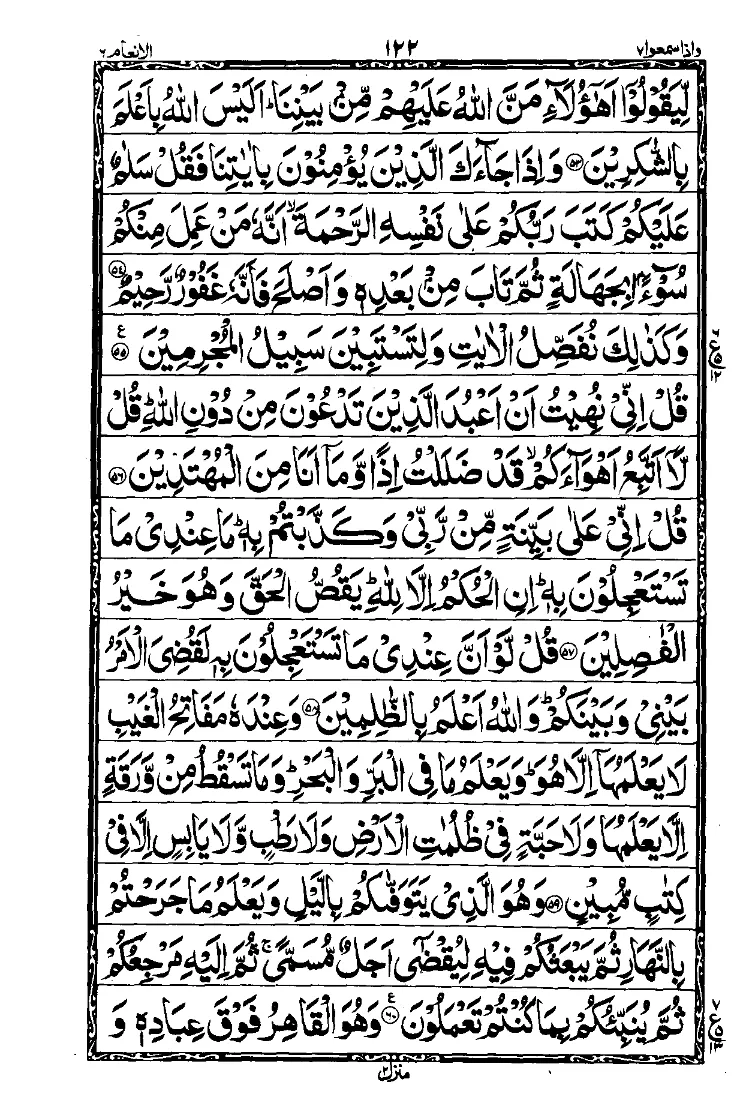 واذا سمعوا ٧ ١٢٢ الانعام ٦
لِّيَقُوْلُوْۤا اَهٰۤؤُلَآءِ مَنَّ اللّٰهُ عَلَيْهِمْ مِّنْۢ بَيْنِنَا ؕ اَلَيْسَ اللّٰهُ بِاَعْلَمَ
بِالشّٰكِرِيْنَ ﴿۵۳﴾ وَاِذَا جَآءَكَ الَّذِيْنَ يُؤْمِنُوْنَ بِاٰيٰتِنَا فَقُلْ سَلٰمٌ
عَلَيْكُمْ كَتَبَ رَبُّكُمْ عَلٰى نَفْسِهِ الرَّحْمَةَ ۙ اَنَّهٗ مَنْ عَمِلَ مِنْكُمْ
سُوْٓءًۢا بِجَهَالَةٍ ثُمَّ تَابَ مِنْۢ بَعْدِهٖ وَاَصْلَحَ فَاَنَّهٗ غَفُوْرٌ رَّحِيْمٌ ﴿۵۴﴾
وَكَذٰلِكَ نُفَصِّلُ الْاٰيٰتِ وَلِتَسْتَبِيْنَ سَبِيْلُ الْمُجْرِمِيْنَ ﴿۵۵﴾ ع
قُلْ اِنِّيْ نُهِيْتُ اَنْ اَعْبُدَ الَّذِيْنَ تَدْعُوْنَ مِنْ دُوْنِ اللّٰهِ ؕ قُلْ
لَّاۤ اَتَّبِعُ اَهْوَآءَكُمْ ۙ قَدْ ضَلَلْتُ اِذًا وَّمَاۤ اَنَا مِنَ الْمُهْتَدِيْنَ ﴿۵۶﴾
قُلْ اِنِّيْ عَلٰى بَيِّنَةٍ مِّنْ رَّبِّيْ وَكَذَّبْتُمْ بِهٖ ؕ مَا عِنْدِيْ مَا
تَسْتَعْجِلُوْنَ بِهٖ ؕ اِنِ الْحُكْمُ اِلَّا لِلّٰهِ ؕ يَقُصُّ الْحَقَّ وَهُوَ خَيْرُ
الْفٰصِلِيْنَ ﴿۵۷﴾ قُلْ لَّوْ اَنَّ عِنْدِيْ مَا تَسْتَعْجِلُوْنَ بِهٖ لَقُضِيَ الْاَمْرُ
بَيْنِيْ وَبَيْنَكُمْ ؕ وَاللّٰهُ اَعْلَمُ بِالظّٰلِمِيْنَ ﴿۵۸﴾ وَعِنْدَهٗ مَفَاتِحُ الْغَيْبِ
لَا يَعْلَمُهَاۤ اِلَّا هُوَ ؕ وَيَعْلَمُ مَا فِي الْبَرِّ وَالْبَحْرِ ؕ وَمَا تَسْقُطُ مِنْ وَّرَقَةٍ
اِلَّا يَعْلَمُهَا وَلَا حَبَّةٍ فِيْ ظُلُمٰتِ الْاَرْضِ وَلَا رَطْبٍ وَّلَا يَابِسٍ اِلَّا فِيْ
كِتٰبٍ مُّبِيْنٍ ﴿۵۹﴾ وَهُوَ الَّذِيْ يَتَوَفّٰىكُمْ بِالَّيْلِ وَيَعْلَمُ مَا جَرَحْتُمْ
بِالنَّهَارِ ثُمَّ يَبْعَثُكُمْ فِيْهِ لِيُقْضٰۤى اَجَلٌ مُّسَمًّى ۚ ثُمَّ اِلَيْهِ مَرْجِعُكُمْ
ثُمَّ يُنَبِّئُكُمْ بِمَا كُنْتُمْ تَعْمَلُوْنَ ﴿۶۰﴾ ع وَهُوَ الْقَاهِرُ فَوْقَ عِبَادِهٖ وَ
منزل ٢